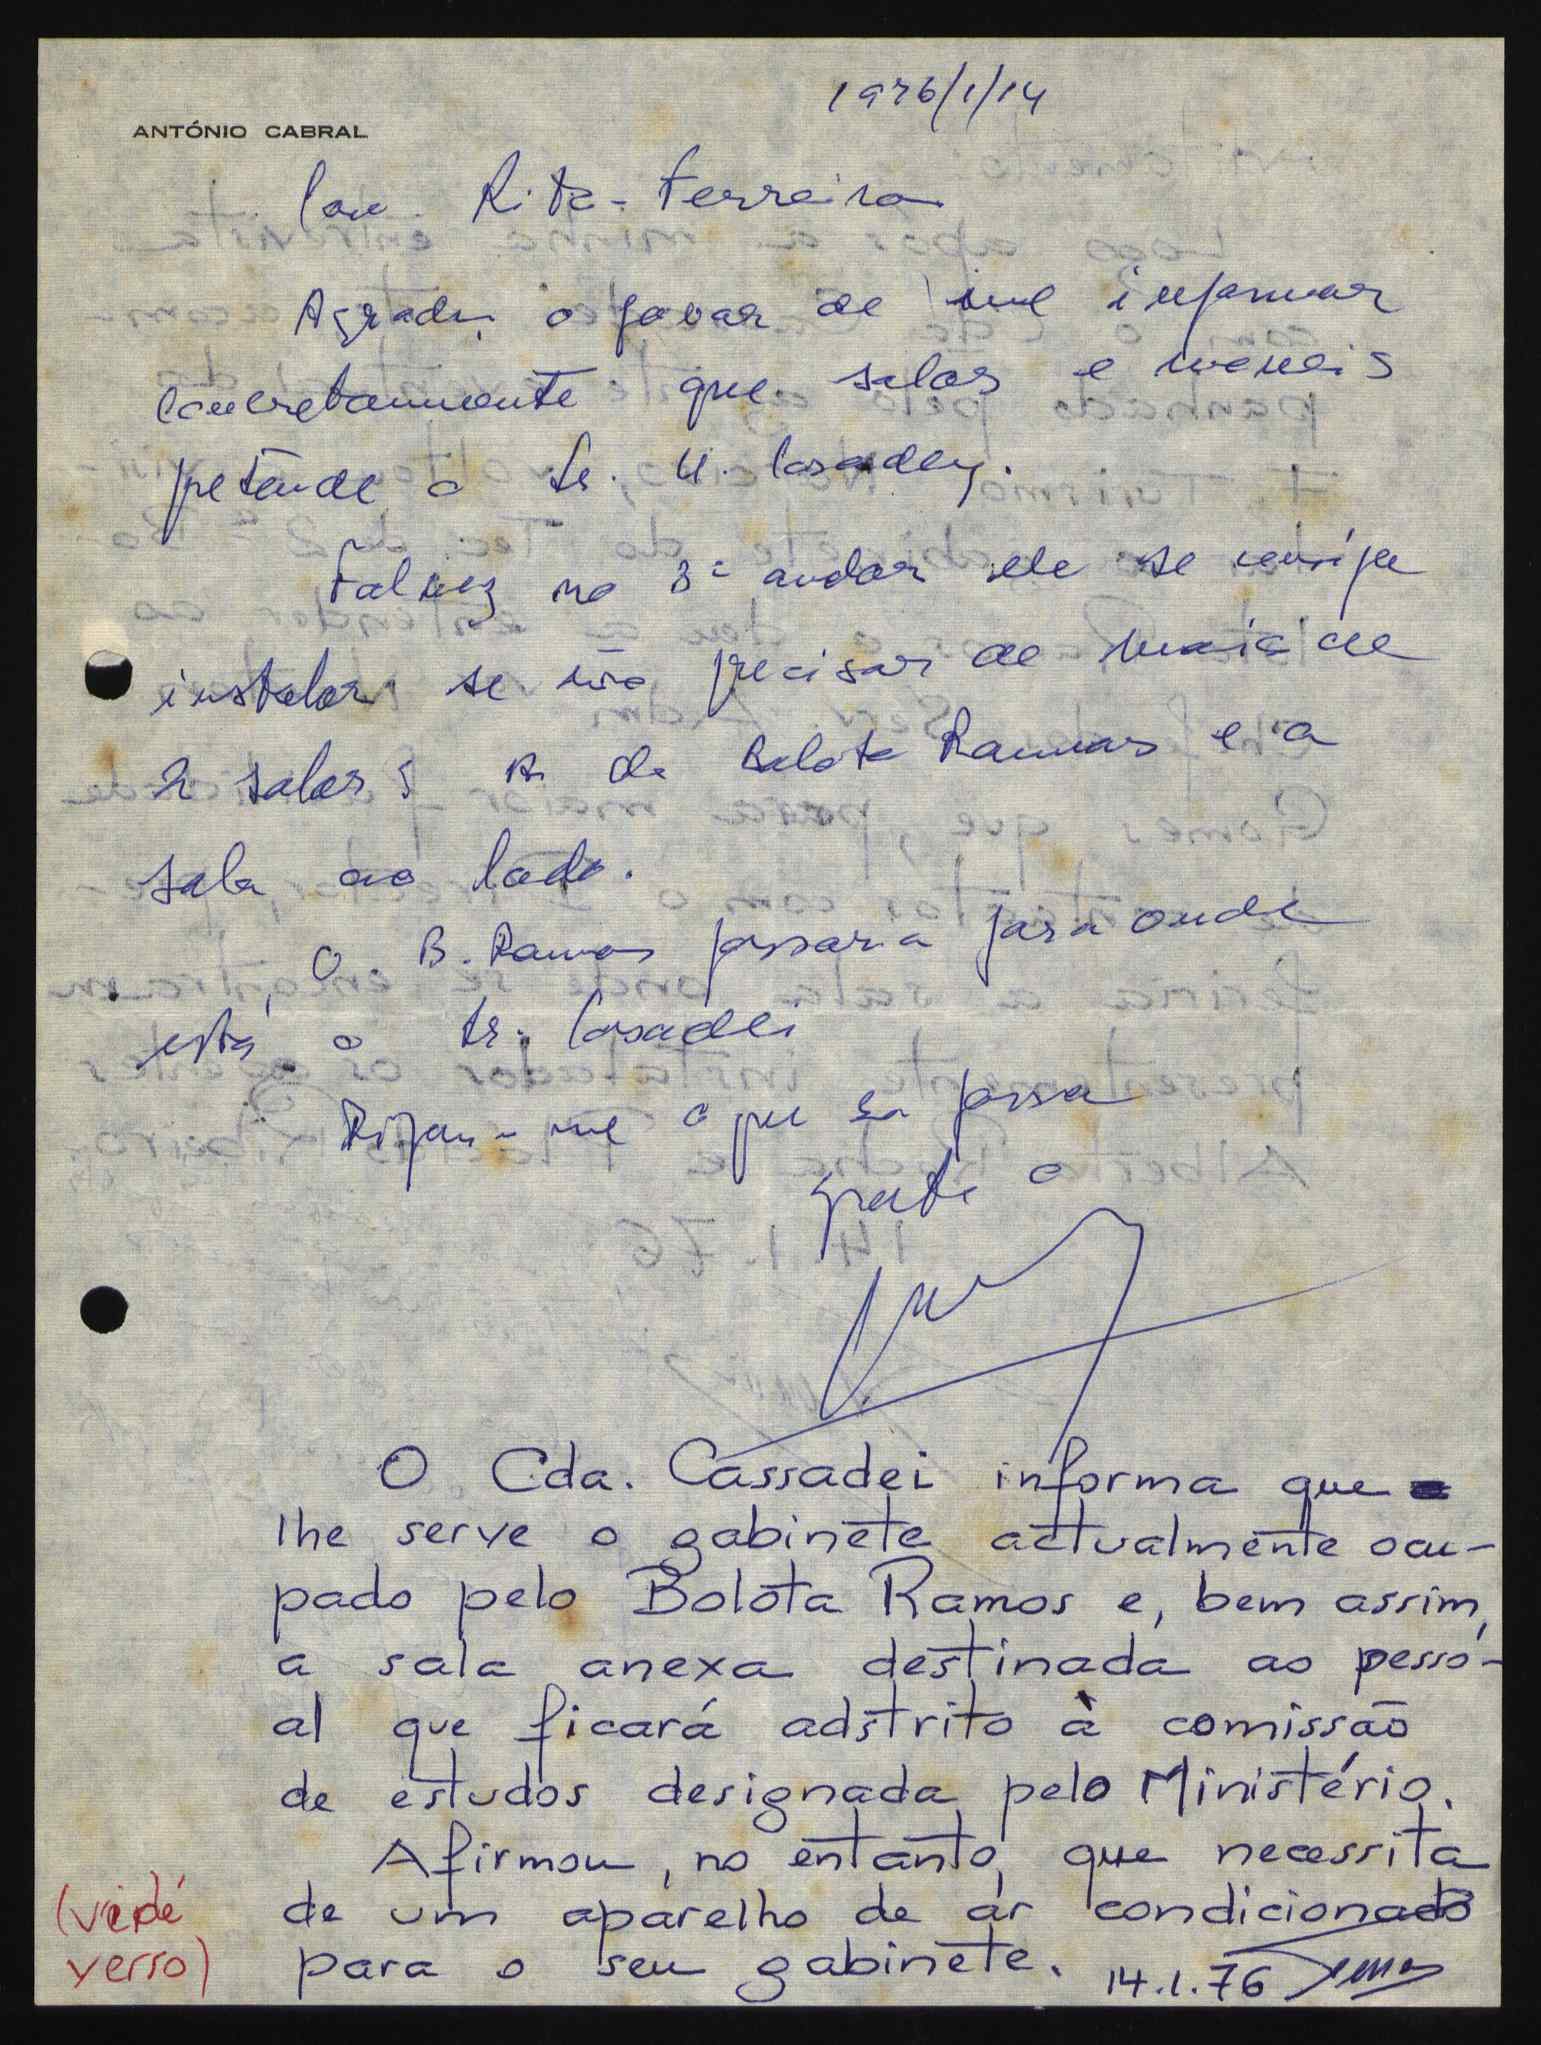 1976/1/14
ANTÓNIO CABRAL
Rita-Ferreira
Agradeço o favor de me informar
concretamente que salas e moveis
pretende o Sr. U. Casadey.
Talvez no 3º andar ele se consiga
instalar se não precisar de mais de
2 salas; a do Balota Ramos e a
sala ao lado.
O B. Ramos passaria para onde
está o Sr. Casadei
Digam-me o que se passa
grato o
O Cda. Cassadei informa que
lhe serve o gabinete actualmente ocu-
pado pelo Bolota Ramos e, bem assim,
a sala anexa destinada ao pesso-
al que ficará adstrito à comissão
de estudos designada pelo Ministério.
Afirmou, no entanto, que necessita
de um aparelho de ar condicionado
para o seu gabinete. 14.1.76
(vide
verso)